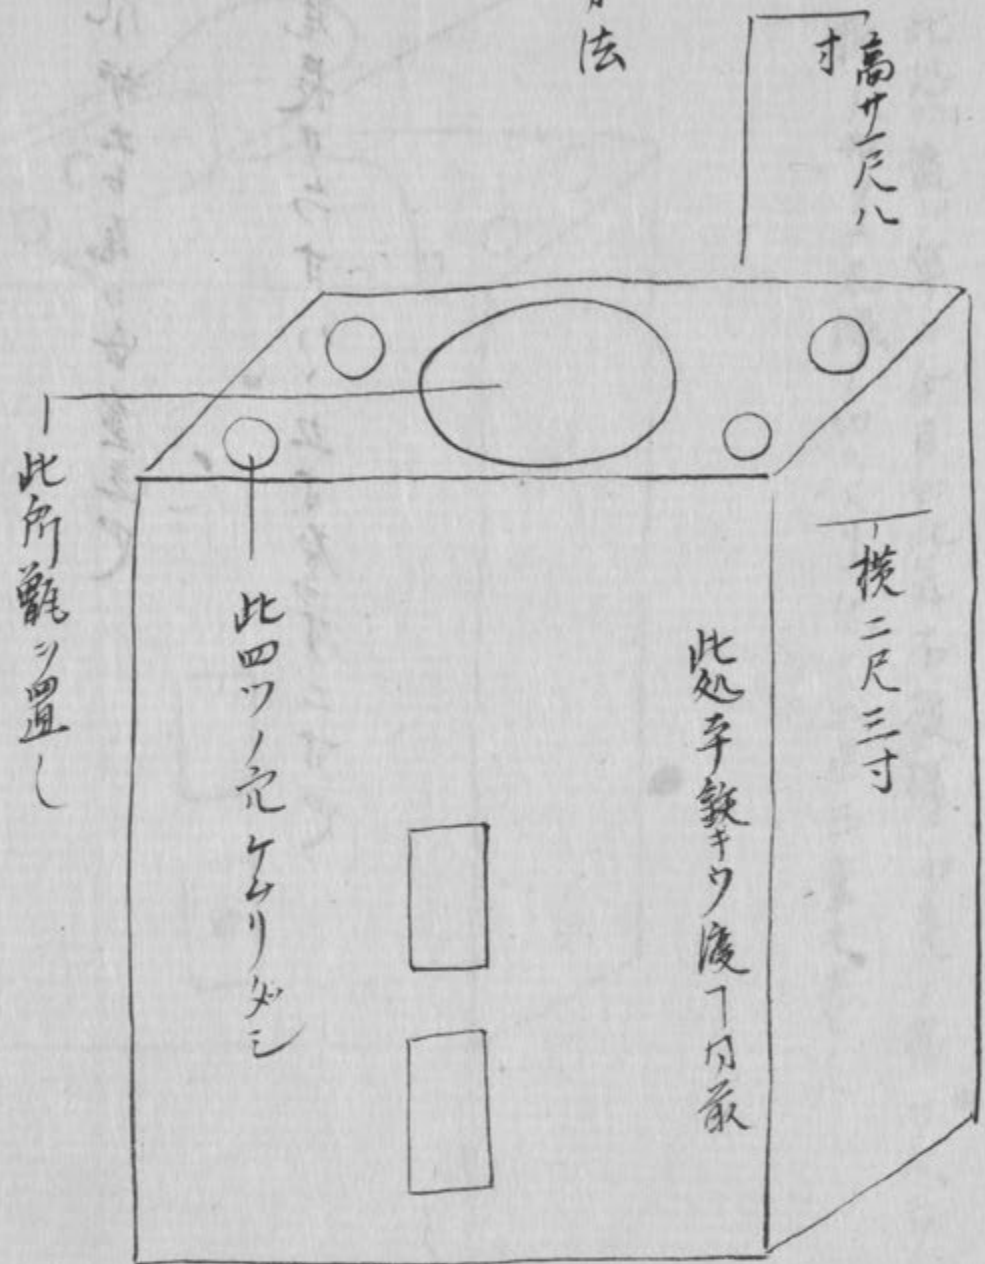 高サ一尺八
寸
法
横二尺三寸
此処平鉄キウ渡ス
此四ツノ穴ケムリダシ
此所甑ヲ置し